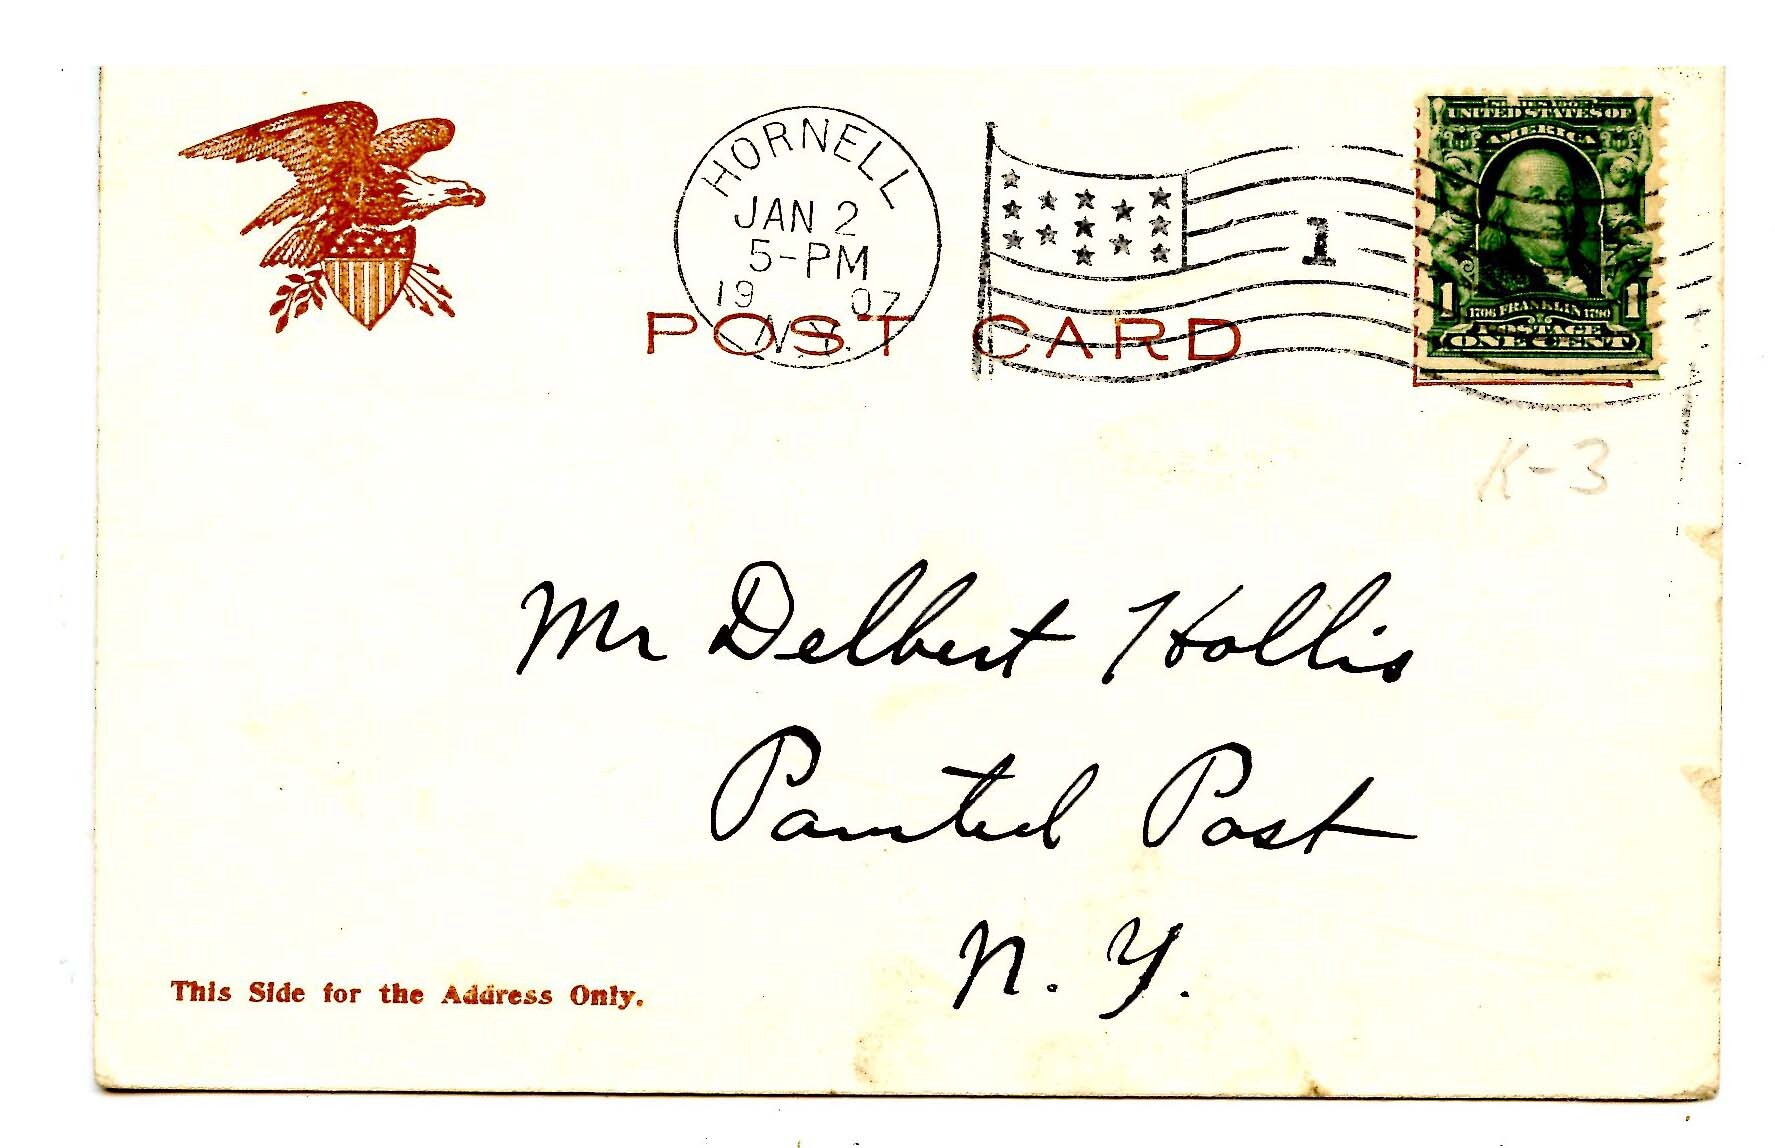 HORNELL
JAN 2
5-PM
19 07
N.Y.
1
UNITED STATES OF
AMERICA
1 1706 FRANKLIN 1790 1
POSTAGE
ONE CENT
POST CARD
K-3
Mr Delbert Hollis
Painted Post
N. Y.
This Side for the Address Only.